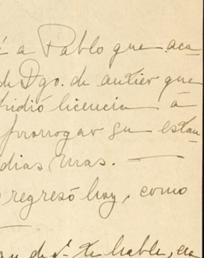 é a Pablo que aca
de Dgo. de antier que
pidió licencia á
prorrogar su estan
dias mas. —
regresó hoy, como
de hable, en